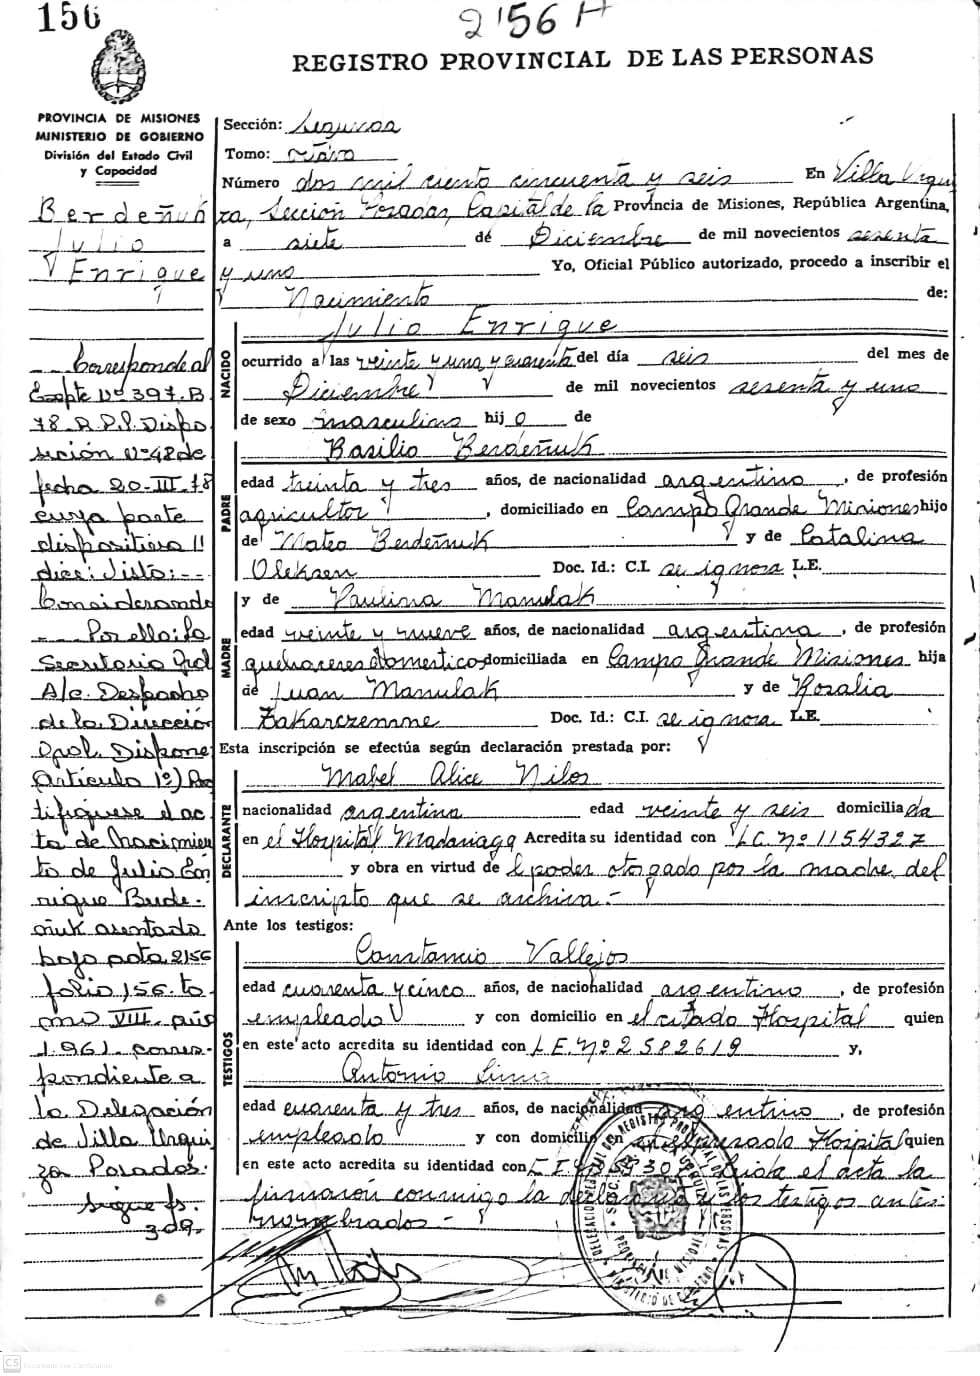 156
2156 A
REGISTRO PROVINCIAL DE LAS PERSONAS
PROVINCIA DE MISIONES
MINISTERIO DE GOBIERNO
División del Estado Civil
y Capacidad
Berdeñuk
Julio
Enrique
Corresponde al
Expte Nº 397.B
78. R.P.P. Dispo
sición Nº 48 de
fecha 20-III-78
cuya parte
dispositiva
dice: Visto: --
Considerando
Por ello: La
Secretario Gral
A/c. Despacho
de la Dirección
Gral. Dispone
Artículo 1º) Rec
tifíquese el ac
ta de Nacimien
to de Julio En
rique Bude-
ñuk asentado
bajo acta 2156
folio 156. to
mo VIII. año
1.961. corres-
pondiente a
la Delegación
de Villa Urqui
za Posadas.
Sigue fs.
309.
Sección: Segunda
Tomo: octavo
Número dos mil ciento cincuenta y seis En Villa Urqui
za, Sección Posadas, Capital de la Provincia de Misiones, República Argentina,
a siete de Diciembre de mil novecientos sesenta
y uno Yo, Oficial Público autorizado, procedo a inscribir el
Nacimiento de:
Julio Enrique
NACIDO
ocurrido a las veinte y una y cuarenta del día seis del mes de
Diciembre de mil novecientos sesenta y uno
de sexo masculino hijo de
Basilio Berdeñuk
PADRE
edad treinta y tres años, de nacionalidad argentino, de profesión
agricultor, domiciliado en Campo Grande Misiones hijo
de Mateo Berdeñuk y de Catalina
Oleksen Doc. Id.: C.I. se ignora L.E.
y de Paulina Manulak
MADRE
edad veinte y nueve años, de nacionalidad argentina, de profesión
quehaceres domestico domiciliada en Campo Grande Misiones hija
de Juan Manulak y de Rosalia
Zakarczemne Doc. Id.: C.I. se ignora L.E.
Esta inscripción se efectúa según declaración prestada por:
Mabel Alice Nilos
DECLARANTE
nacionalidad argentina edad veinte y seis domiciliada
en el Hospital Madariaga Acredita su identidad con L.C. nº 1154327
y obra en virtud de el poder otorgado por la madre del
inscripto que se archiva.-
Ante los testigos:
Constancio Vallejos
TESTIGOS
edad cuarenta y cinco años, de nacionalidad argentino, de profesión
empleado y con domicilio en el citado Hospital quien
en este acto acredita su identidad con L.E. nº 2582619 y,
Antonio Lima
edad cuarenta y tres años, de nacionalidad argentino, de profesión
empleado y con domicilio en el expresado Hospital quien
en este acto acredita su identidad con L.E. Leida el acta la
firmaron conmigo la declarante y los testigos antes
nombrados.-
CS Escaneado con CamScanner